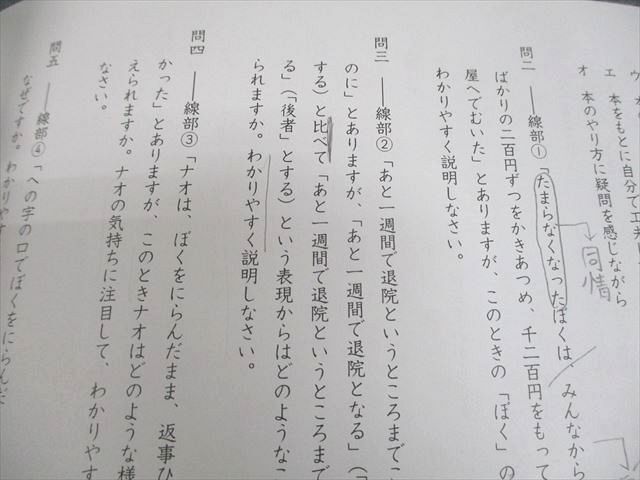 ウ
エ 本をもとに自分で工夫し
オ 本のやり方に疑問を感じながら
問二 ――線部①「たまらなくなったぼくは、みんなから
ばかりの二百円ずつをかきあつめ、千二百円をもって
屋へでむいた」とありますが、このときの「ぼく」の
わかりやすく説明しなさい。
同情
問三 ――線部②「あと一週間で退院というところまでこ
のに」とありますが、「あと一週間で退院となる」（「
する）と比べて「あと一週間で退院というところまで
る」（「後者」とする）という表現からはどのようなこ
られますか。わかりやすく説明しなさい。
問四 ――線部③「ナオは、ぼくをにらんだまま、返事ひ
かった」とありますが、このときナオはどのような様
えられますか。ナオの気持ちに注目して、わかりやす
なさい。
問五 ――線部④「への字の口でぼくをにらんだ
なぜですか。わかりやす